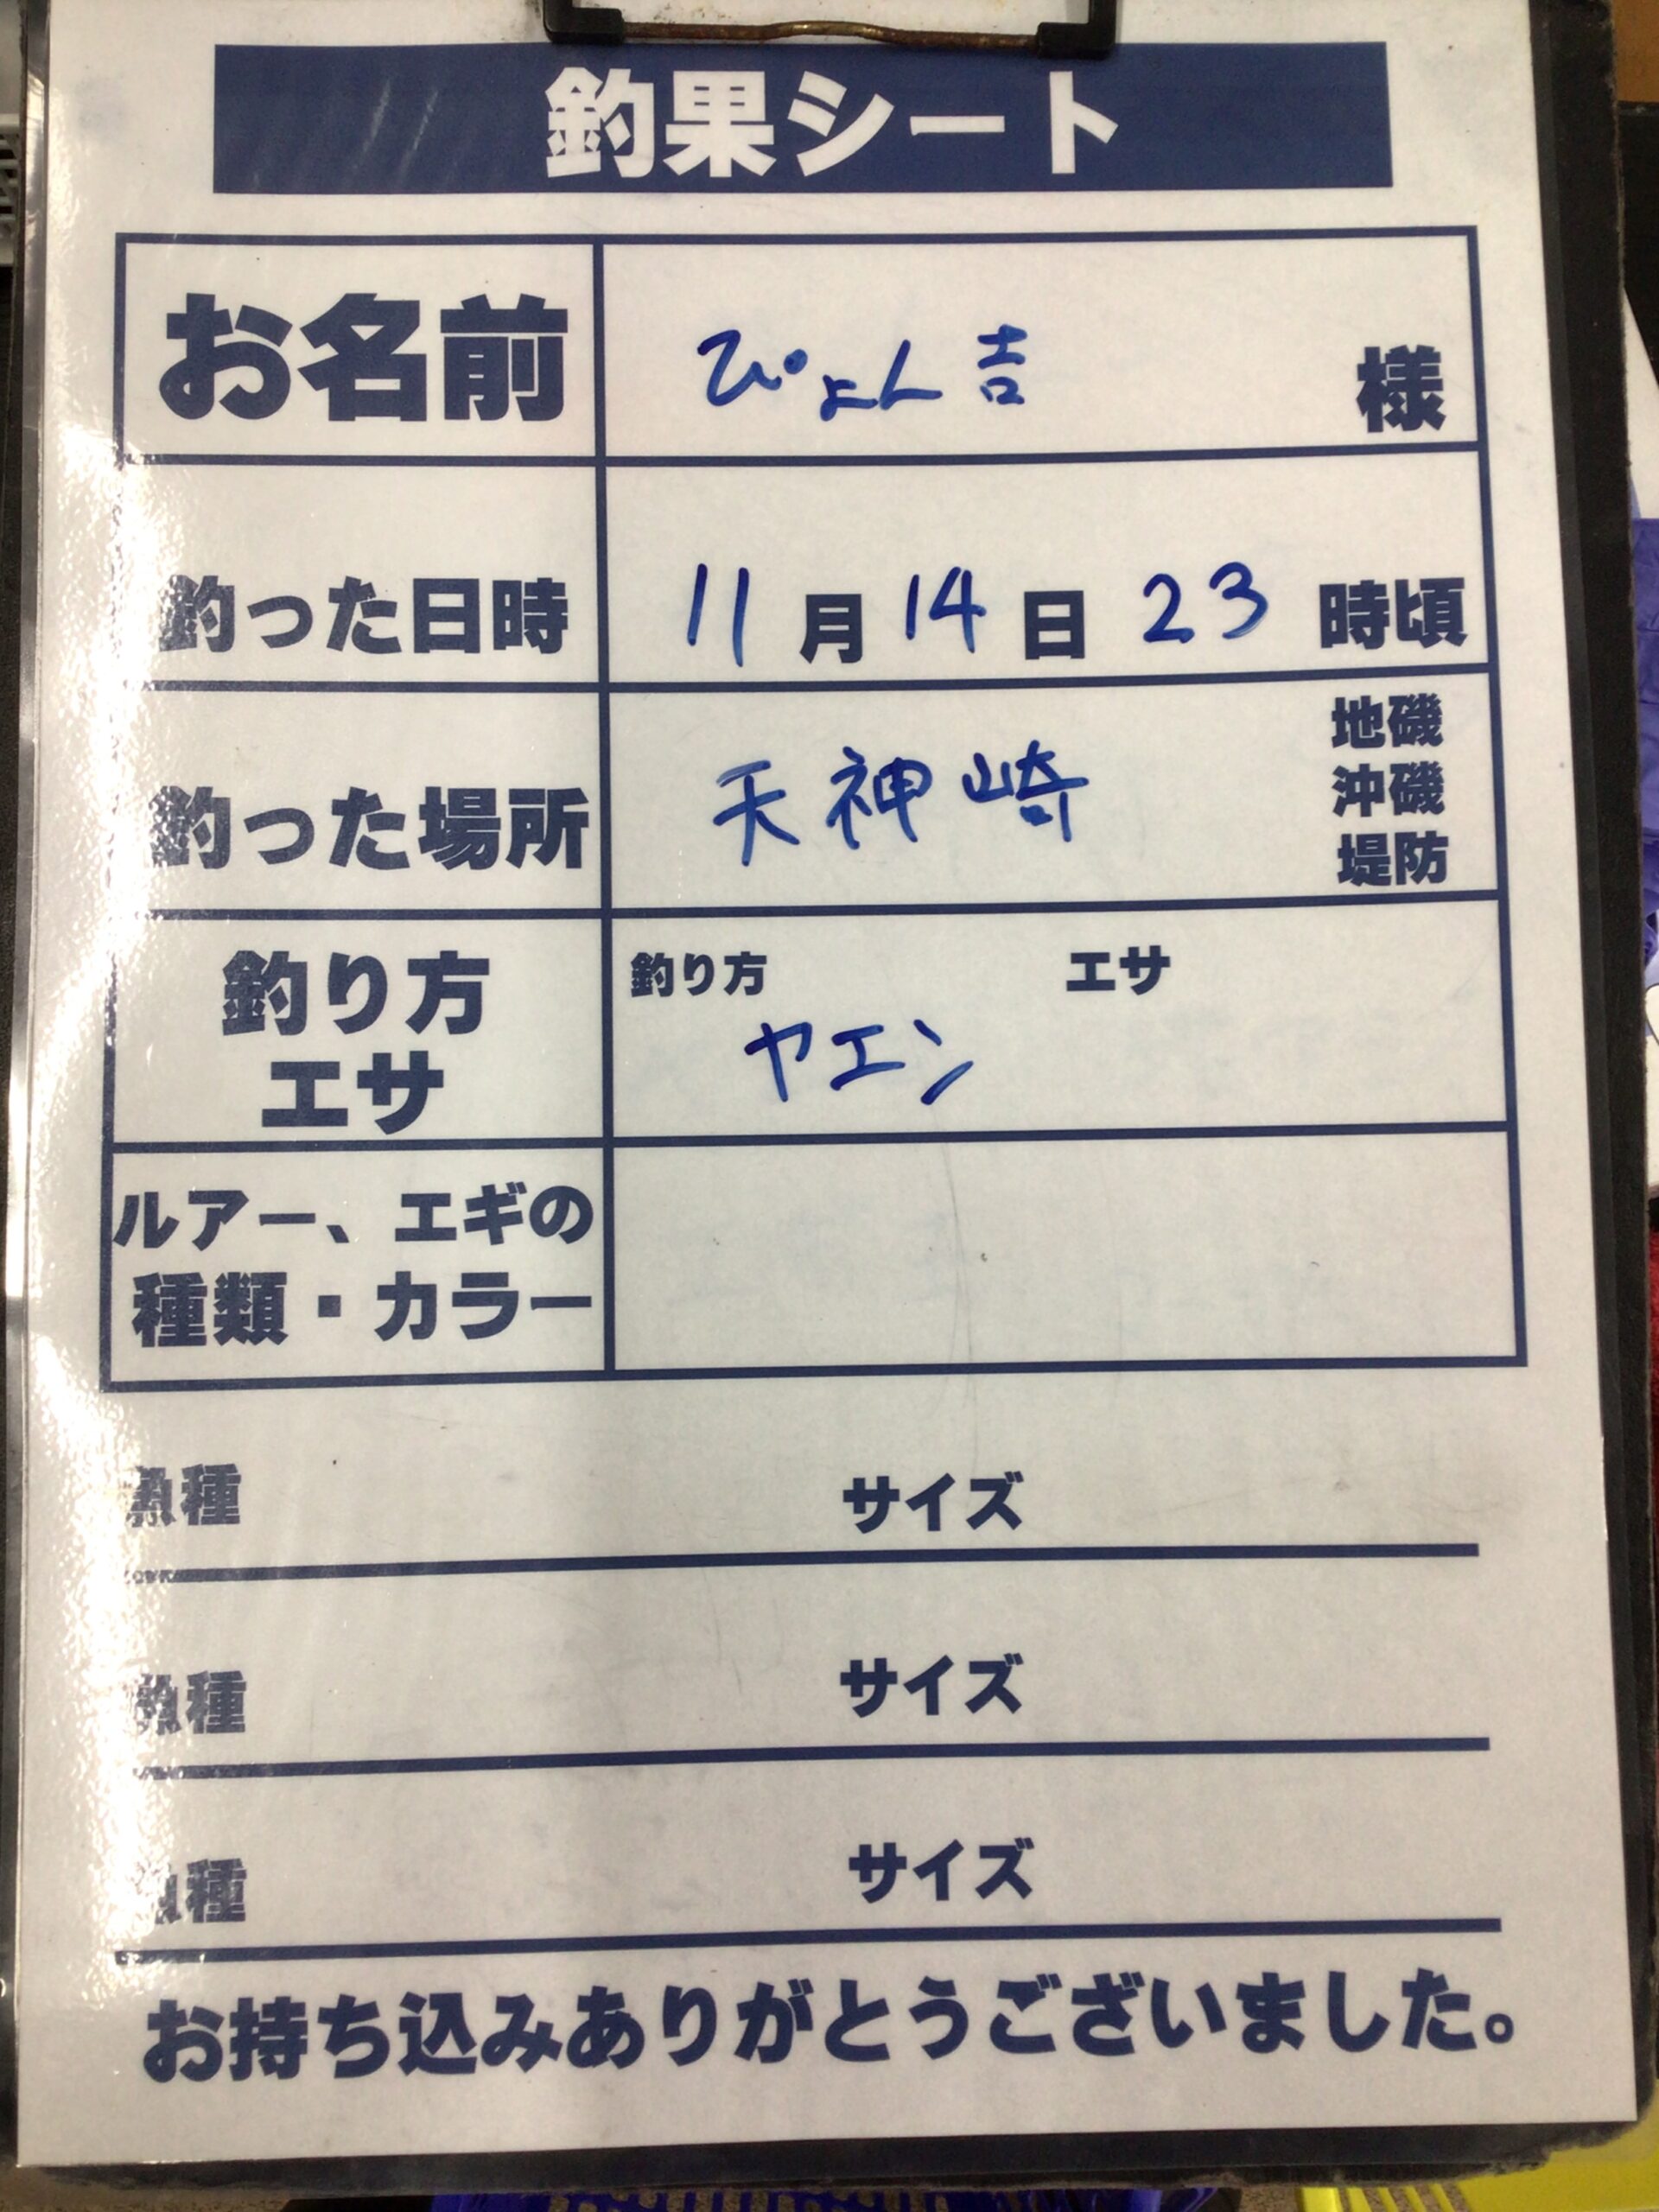 釣果シート
お名前 ぴょん吉 様
釣った日時 11月14日 23時頃
釣った場所 天神崎 地磯 沖磯 堤防
釣り方 エサ
釣り方 エサ
ヤエン
ルアー、エギの
種類・カラー
魚種 サイズ
魚種 サイズ
魚種 サイズ
お持ち込みありがとうございました。